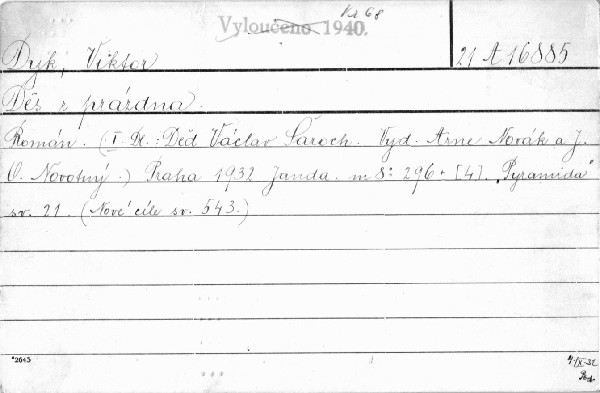 Vr 68
Vyloučeno 1940.
Dyk, Viktor
21 A 16885
Děs z prázdna.
Román. (I. Dl.: Děd Václav Šaroch. Vyd. Arne Novák a J.
O. Novotný.) Praha 1932 Janda. m 8° 296 + [4]. "Pyramida"
sv. 21. (Nové cíle sv. 543.)
*2645